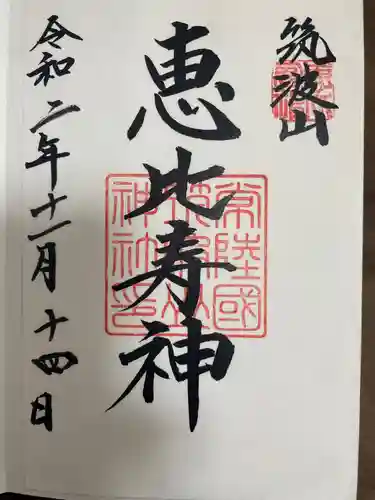 筑波山
恵比寿神
令和二年十一月十四日
常陸國
筑波山
神社印